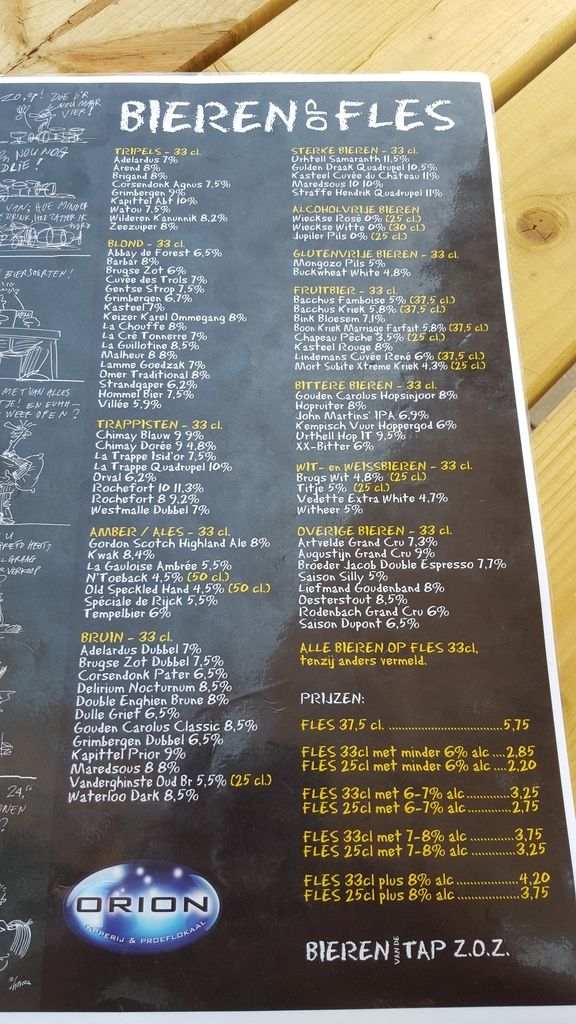 BIEREN OP FLES
TRIPELS - 33 cl.
Adelardus 7%
Arend 8%
Brigand 8%
Corsendonk Agnus 7,5%
Grimbergen 9%
Kapittel Abt 10%
Watou 7,5%
Wilderen Kanunnik 8,2%
Zeezuiper 8%
BLOND - 33 cl.
Abbay de Forest 6,5%
Barbár 8%
Brugse Zot 6%
Cuvée des Trols 7%
Gentse Strop 7,5%
Grimbergen 6,7%
Kasteel 7%
Keizer Karel Ommegang 8%
La Chouffe 8%
La Cré Tonnerre 7%
La Guillotine 8,5%
Malheur 8 8%
Lamme Goedzak 7%
Omer Traditional 8%
Strandgaper 6,2%
Hommel Bier 7,5%
Villée 5,9%
TRAPPISTEN - 33 cl.
Chimay Blauw 9 9%
Chimay Dorée 9 4,8%
La Trappe Isid'or 7,5%
La Trappe Quadrupel 10%
Orval 6,2%
Rochefort 10 11,3%
Rochefort 8 9,2%
Westmalle Dubbel 7%
AMBER / ALES - 33 cl.
Gordon Scotch Highland Ale 8%
Kwak 8,4%
La Gauloise Ambrée 5,5%
N'Toeback 4,5% (50 cl.)
Old Speckled Hand 4,5% (50 cl.)
Spéciale de Rijck 5,5%
Tempelbier 6%
BRUIN - 33 cl.
Adelardus Dubbel 7%
Brugse Zot Dubbel 7,5%
Corsendonk Pater 6,5%
Delirium Nocturnum 8,5%
Double Enghien Brune 8%
Dulle Grief 6,5%
Gouden Carolus Classic 8,5%
Grimbergen Dubbel 6,5%
Kapittel Prior 9%
Maredsous 8 8%
Vanderghinste Oud Br 5,5% (25 cl.)
Waterloo Dark 8,5%
ORION
TAPPERIJ & PROEFLOKAAL
STERKE BIEREN - 33 cl.
Urhtell Samaranth 11,5%
Gulden Draak Quadrupel 10,5%
Kasteel Cuvée du Château 11%
Maredsous 10 10%
Straffe Hendrik Quadrupel 11%
ALCOHOLVRIJE BIEREN
Wieckse Rosé 0% (25 cl.)
Wieckse Witte 0% (30 cl.)
Jupiler Pils 0% (25 cl.)
GLUTENVRIJE BIEREN - 33 cl.
Mongozo Pils 5%
Buckwheat White 4,8%
FRUITBIER - 33 cl.
Bacchus Famboise 5% (37,5 cl.)
Bacchus Kriek 5,8% (37,5 cl.)
Bink Bloesem 7,1%
Boon Kriek Marriage Farfait 5,8% (37,5 cl.)
Chapeau Pêche 3,5% (25 cl.)
Kasteel Rouge 8%
Lindemans Cuvée René 6% (37,5 cl.)
Mort Subite Xtreme Kriek 4,3% (25 cl.)
BITTERE BIEREN - 33 cl.
Gouden Carolus Hopsinjoor 8%
Hopruiter 8%
John Martins' IPA 6,9%
Kempisch Vuur Hoppergod 6%
Urthell Hop IT 9,5%
XX-Bitter 6%
WIT- en WEISSBIEREN - 33 cl.
Brugs Wit 4,8% (25 cl.)
Titje 5% (25 cl.)
Vedette Extra White 4,7%
Witheer 5%
OVERIGE BIEREN - 33 cl.
Artvelde Grand Cru 7,3%
Augustijn Grand Cru 9%
Broeder Jacob Double Espresso 7,7%
Saison Silly 5%
Liefmand Goudenband 8%
Oesterstout 8,5%
Rodenbach Grand Cru 6%
Saison Dupont 6,5%
ALLE BIEREN OP FLES 33cl,
tenzij anders vermeld.
PRIJZEN:
FLES 37,5 cl. ..............................5,75
FLES 33cl met minder 6% alc ....2,85
FLES 25cl met minder 6% alc ....2,20
FLES 33cl met 6-7% alc............3,25
FLES 25cl met 6-7% alc............2,75
FLES 33cl met 7-8% alc ............3,75
FLES 25cl met 7-8% alc ............3,25
FLES 33cl plus 8% alc................4,20
FLES 25cl plus 8% alc................3,75
BIEREN VAN DE TAP Z.O.Z.